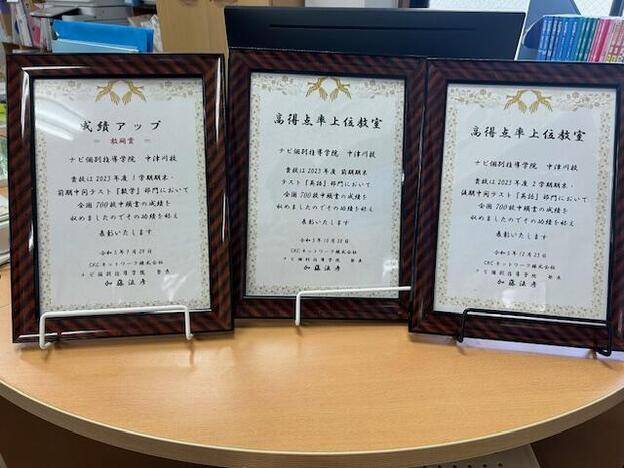 成績アップ
敢闘賞
ナビ個別指導学院 中津川校
貴校は2023年度 1学期期末・
前期中間テスト『数学』部門において
全国700校中顕著の成績を
収めましたのでその功績を称え
表彰いたします
令和5年9月29日
CKCネットワーク株式会社
ナビ個別指導学院 塾長
加藤
高得点率上位教室
ナビ個別指導学院 中津川校
貴校は2023年度 前期期末
テスト『英語』部門において
全国700校中顕著の成績を
収めましたのでその功績を称え
表彰いたします
令和5年10月28日
CKCネットワーク株式会社
ナビ個別指導学院 塾長
加藤
高得点率上位教室
ナビ個別指導学院 中津川校
貴校は2023年度 2学期期末・
後期中間テスト『英語』部門において
全国700校中顕著の成績を
収めましたのでその功績を称え
表彰いたします
令和5年12月23日
CKCネットワーク株式会社
ナビ個別指導学院 塾長
加藤